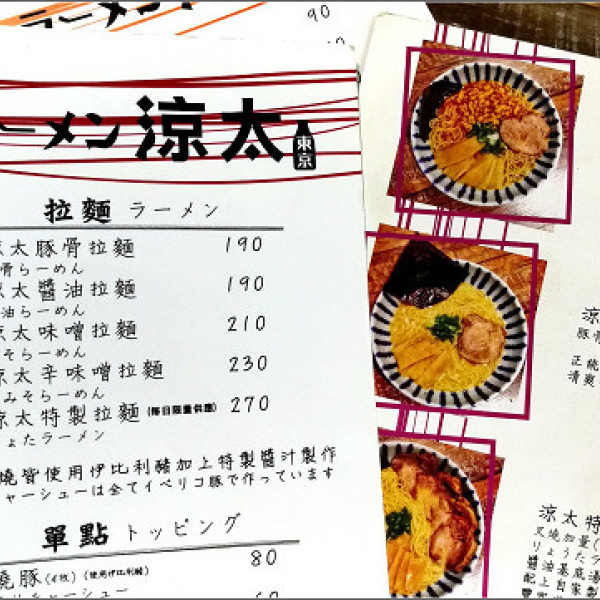 ラーメン
90
ーメン 涼太 東京
拉麵 ラーメン
涼太豚骨拉麵 190
骨らーめん
涼太醬油拉麵 190
油らーめん
涼太味噌拉麵 210
そらーめん
涼太辛味噌拉麵 230
みそらーめん
涼太特製拉麵(每日限量供應) 270
ょたラーメン
燒皆使用伊比利豬加上特製醬汁製作
ャーシューは全てイベリコ豚で作っています
單點 トッピング
燒豚(4枚)(使用伊比利豬) 80
チャーシュー
涼
豚骨
正統
清爽
涼太特
叉燒加量(
りょうたラ
醬油基底湯
配上自家製